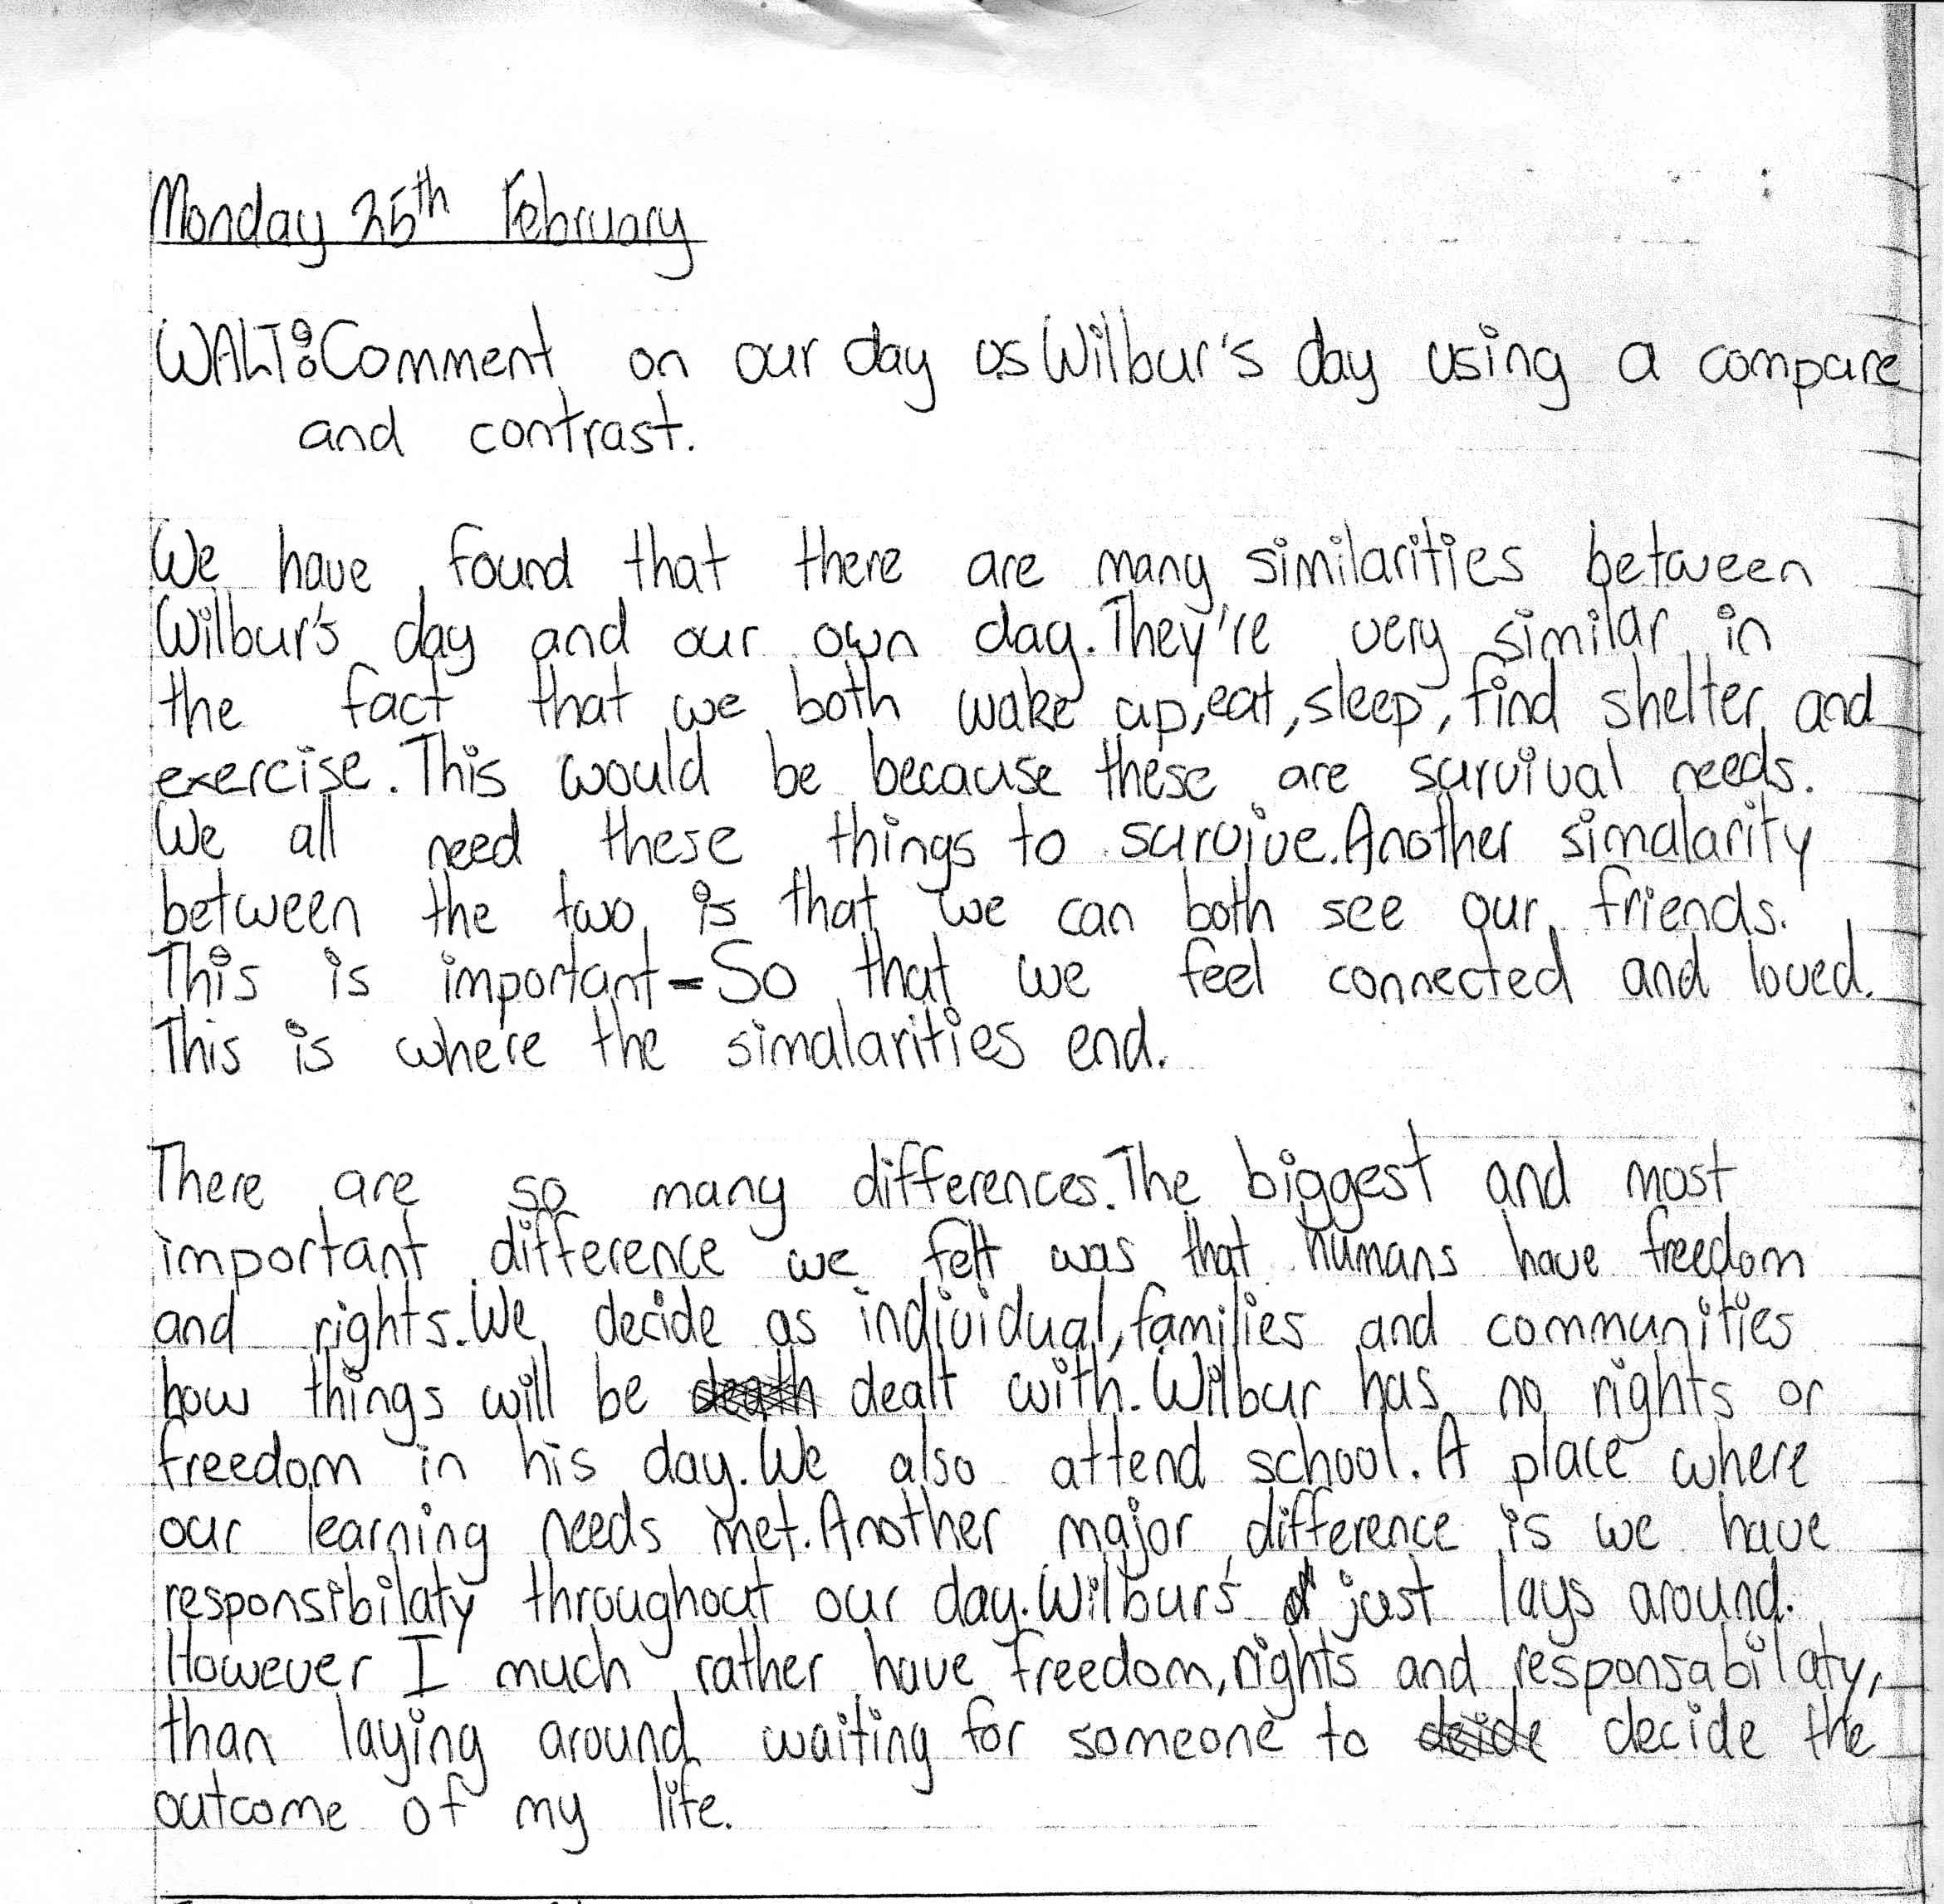 Monday 25th February
WALT: Comment on our day vs Wilbur's day using a compare
and contrast.
We have found that there are many similarities between
Wilbur's day and our own day. They're very similar in
the fact that we both wake up, eat, sleep, find shelter and
exercise. This would be because these are survival needs.
We all need these things to survive. Another simalarity
between the two is that we can both see our friends.
This is important - So that we feel connected and loved.
This is where the simalarities end.
There are so many differences. The biggest and most
important difference we felt was that humans have freedom
and rights. We decide as individual, families and communities
how things will be death dealt with. Wilbur has no rights or
freedom in his day. We also attend school. A place where
our learning needs met. Another major difference is we have
responsibilaty throughout our day. Wilbur's just lays around.
However I much rather have freedom, rights and responsabilaty,
than laying around waiting for someone to deide decide the
outcome of my life.